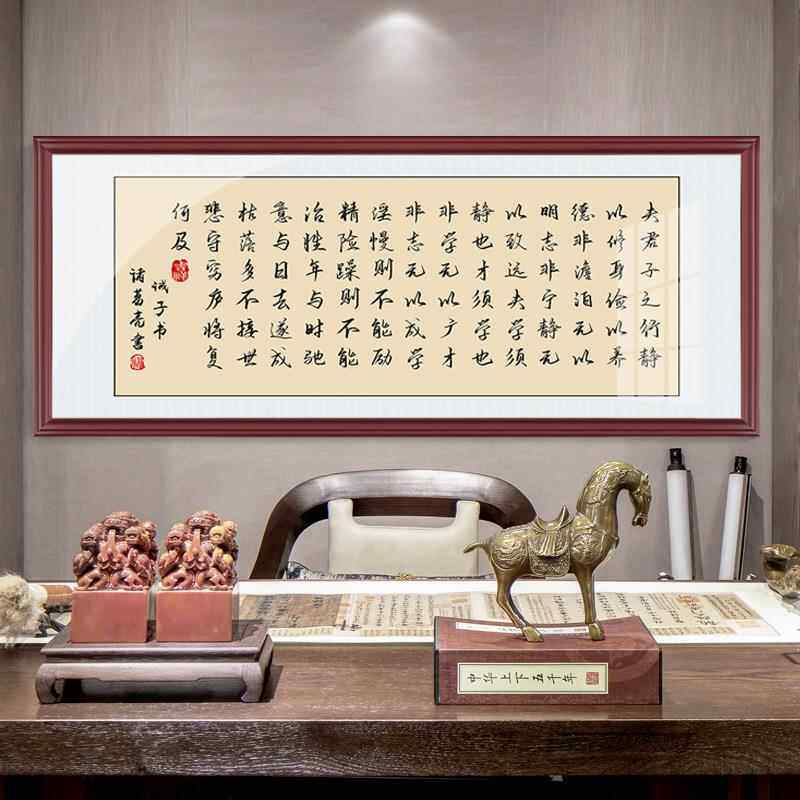 夫君子之行静
以修身俭以养
德非澹泊无以
明志非宁静无
以致远夫学须
静也才须学也
非学无以广才
非志无以成学
淫慢则不能励
精险躁则不能
冶性年与时驰
意与日去遂成
枯落多不接世
悲守穷庐将复
何及
诫子书
诸葛亮书
中华上下五千年